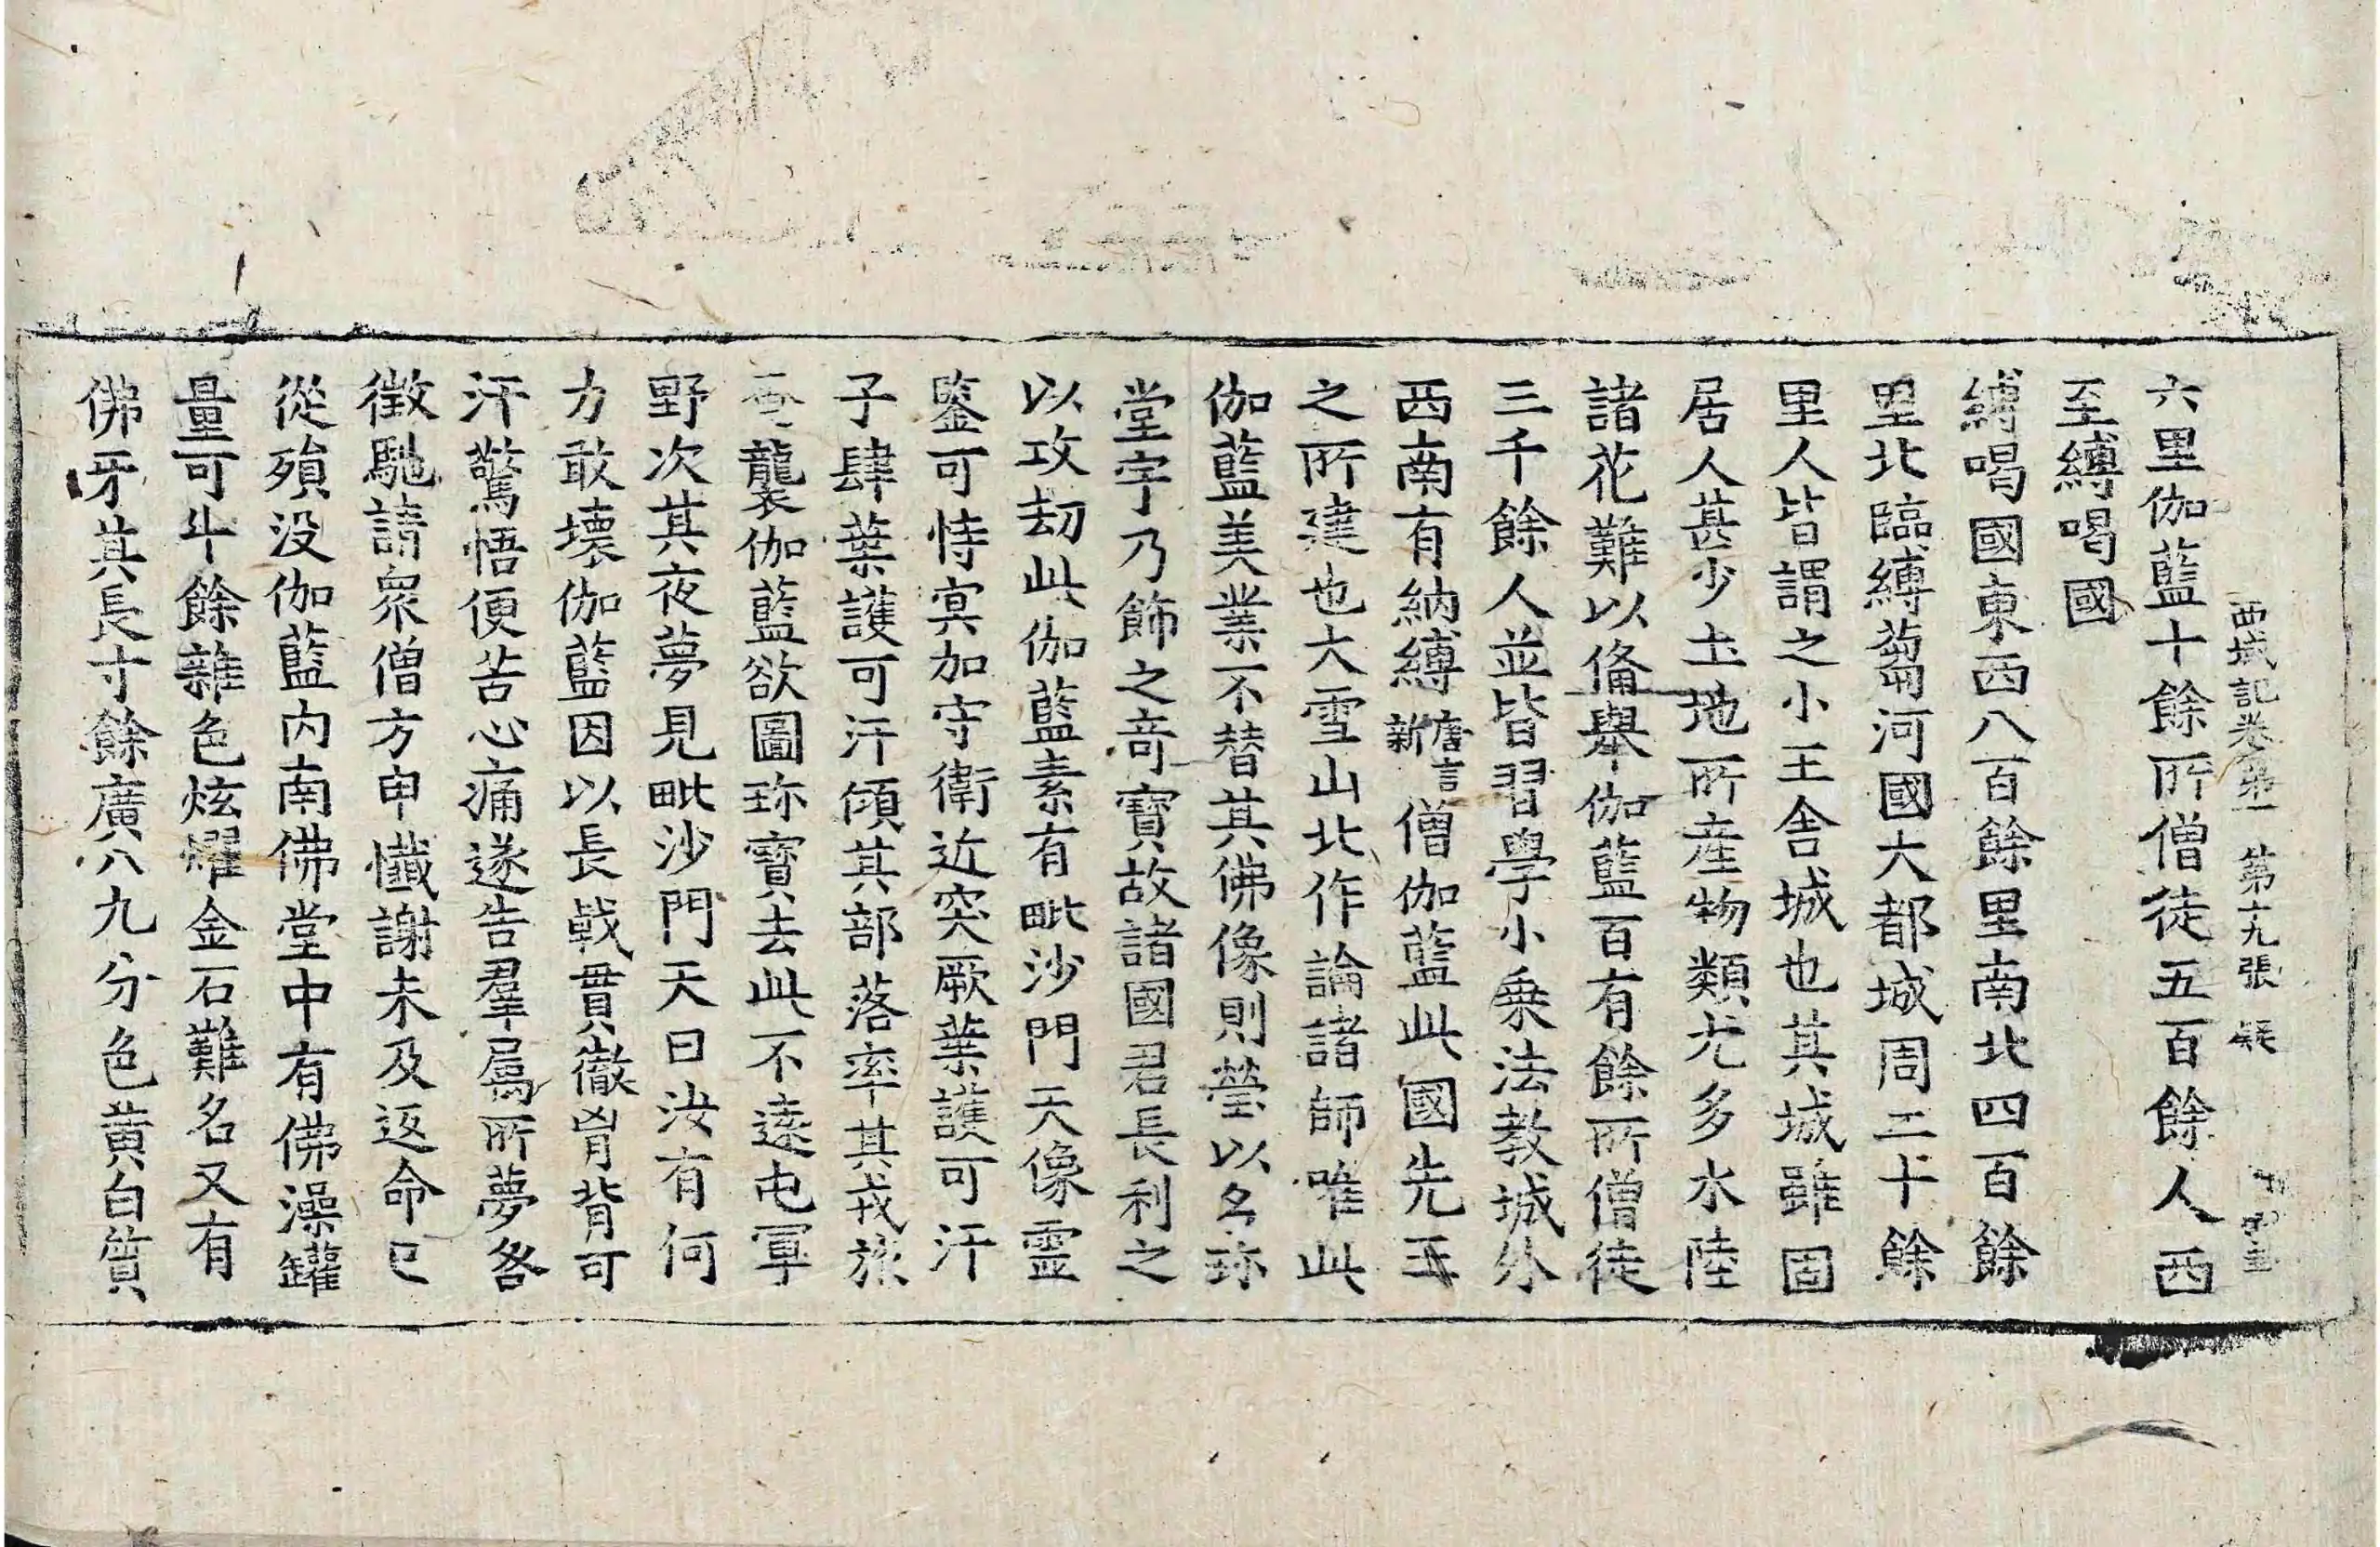 西域記卷第一 第十九張 疑
六里伽藍十餘所僧徒五百餘人西
至縛喝國
縛喝國東西八百餘里南北四百餘
里北臨縛蒭河國大都城周二十餘
里人皆謂之小王舍城也其城雖固
居人甚少土地所產物類尤多水陸
諸花難以備舉伽藍百有餘所僧徒
三千餘人並皆習學小乘法教城外
西南有納縛唐言新僧伽藍此國先王
之所建也大雪山北作論諸師唯此
伽藍美業不替其佛像則瑩以名珍
堂宇乃飾之奇寶故諸國君長利之
以攻劫此伽藍素有毗沙門天像靈
鑒可恃冥加守衛近突厥葉護可汗
子肆葉護可汗傾其部落率其戎旅
奄襲伽藍欲圖珍寶去此不遠屯軍
野次其夜夢見毗沙門天曰汝有何
力敢壞伽藍因以長戟貫徹胷背可
汗驚悟便苦心痛遂告羣屬所夢咎
徵馳請衆僧方申懺謝未及返命已
從殞没伽藍內南佛堂中有佛澡罐
量可斗餘雜色炫耀金石難名又有
佛牙其長寸餘廣八九分色黃白質